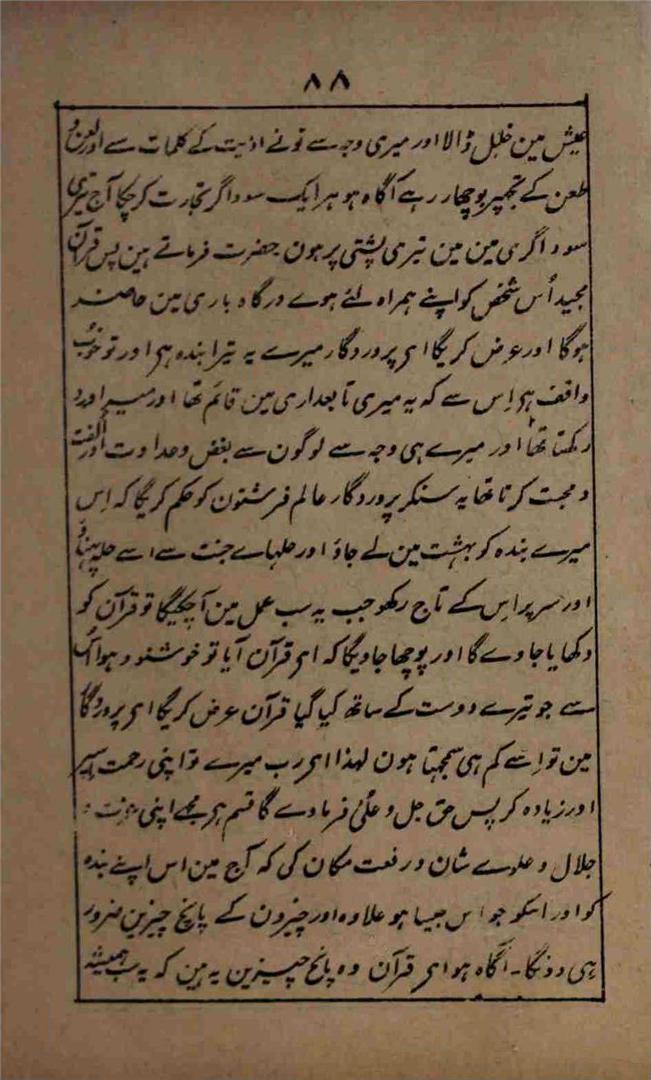 ۸۸
عیش مین خلل ڈالا اور میری وجہ سے تونے اذیت کے کلمات سے اور لعن و
طعن کے تجھپر بوچھار رہے آگاہ ہو ہر ایک سوداگر تجارت کرچکا آج تیری
سوداگری مین مین تیری پشتی پر ہون حضرت فرماتے ہین پس قرآن
مجید اُس شخص کو اپنے ہمراہ لئے ہوے درگاہ باری مین حاضر
ہوگا اور عرض کریگا ای پروردگار میرے یہ تیرا بندہ ہی اور تو خوب
واقف ہی اِس سے کہ یہ میری تابعداری مین قائم تھا اور میرا ورد
رکھتا تھا اور میرے ہی وجہ سے لوگون سے بغض و عداوت اور اُلفت
و محبت کرتا تھا یہ سنکر پروردگار عالم فرشتون کو حکم کریگا کہ اِس
میرے بندہ کو بہشت مین لے جاؤ اور حلہاے جنت سے اسے حلہ پہناؤ
اور سر پر اِس کے تاج رکھو جب یہ سب عمل مین آچکیگا تو قرآن کو
دکھایا جاوے گا اور پوچھا جاویگا کہ ای قرآن آیا تو خوشنود ہوا اُس
سے جو تیرے دوست کے ساتھ کیا گیا قرآن عرض کریگا ای پروردگار
مین تو اِسے کم ہی سمجہتا ہون لہذا ای رب میرے تو اپنی رحمت اِسپر
اور زیادہ کر پس حق جل و علیٰ فرماوے گا قسم ہی مجھے اپنی عزت و
جلال و علوے شان و رفعت مکان کی کہ آج مین اس اپنے بندہ
کو اور اسکو جو اس جیسا ہو علاوہ اور چیزون کے پانچ چیزین ضرور
ہی دونگا۔ آگاہ ہو ای قرآن وہ پانچ چیزین یہ ہین کہ یہ سب ہمیشہ